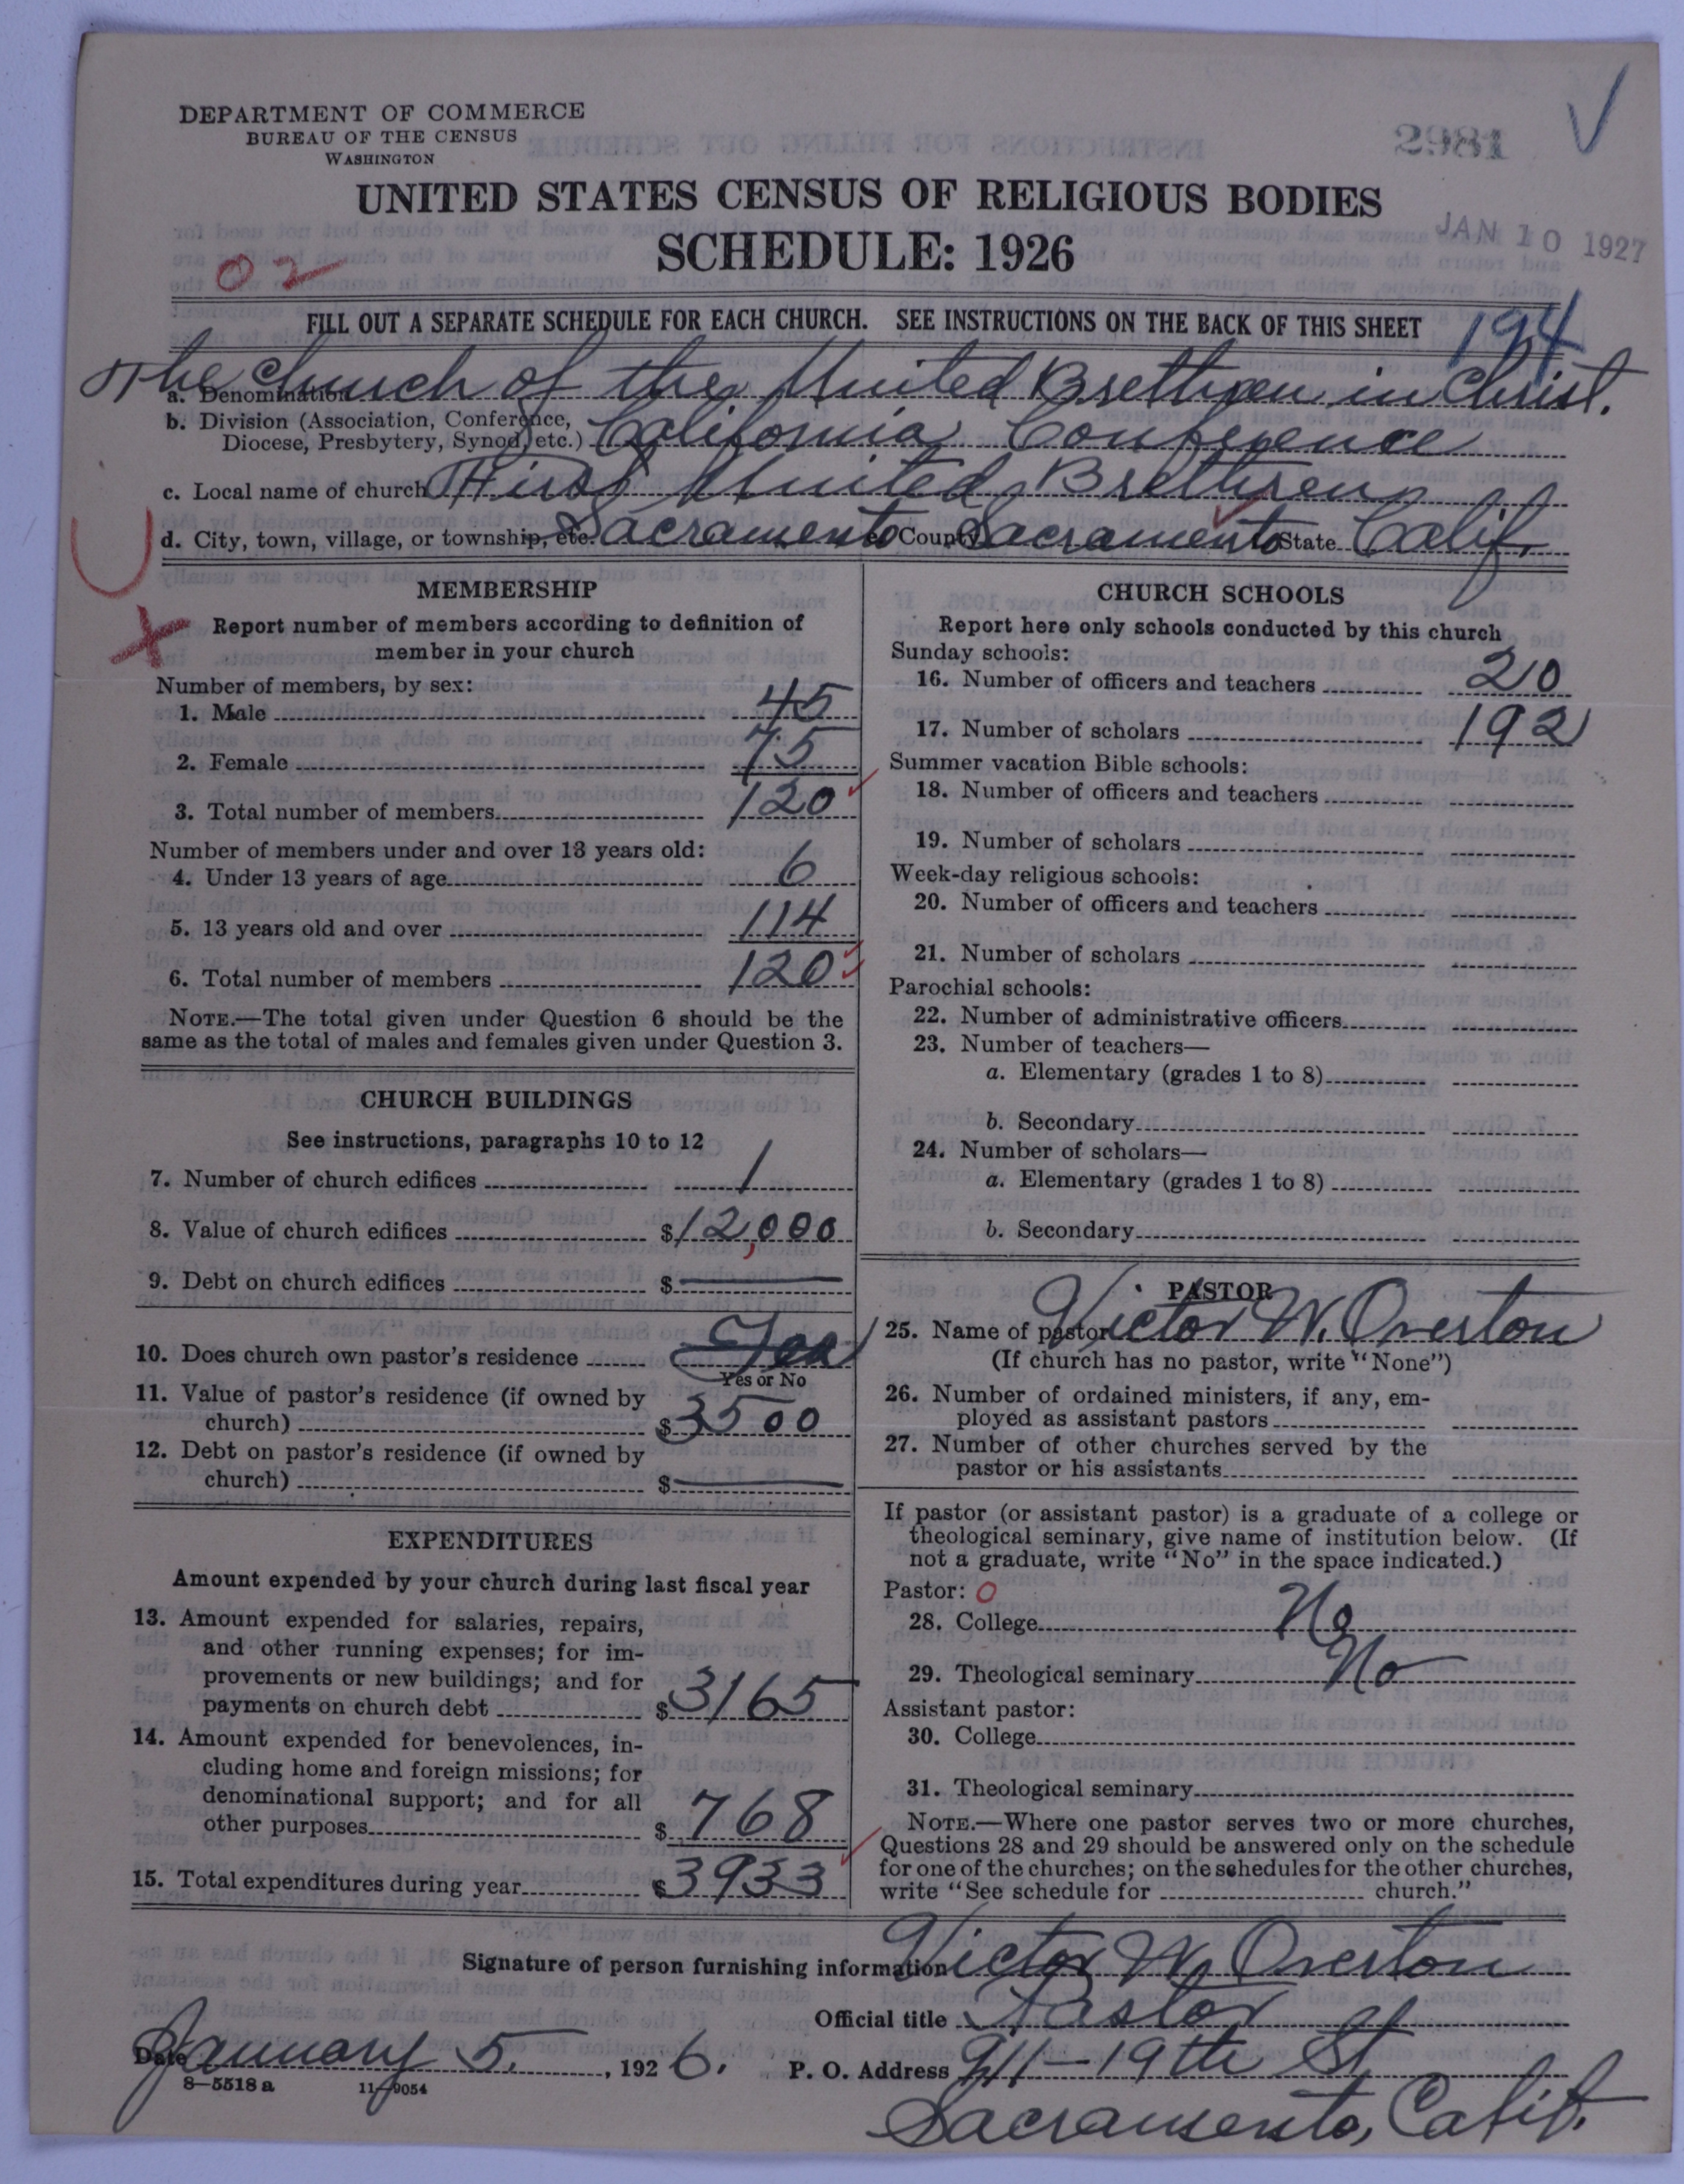 DEPARTMENT OF COMMERCE
BUREAU OF THE CENSUS
WASHINGTON
2981
UNITED STATES CENSUS OF RELIGIOUS BODIES
SCHEDULE: 1926
JAN 10 1927
02
FILL OUT A SEPARATE SCHEDULE FOR EACH CHURCH. SEE INSTRUCTIONS ON THE BACK OF THIS SHEET
194
a. Denomination The Church of the United Brethren in Christ.
b. Division (Association, Conference,
Diocese, Presbytery, Synod, etc.) California Conference
c. Local name of church First United Brethren
d. City, town, village, or township, etc. Sacramento County Sacramento State Calif.
MEMBERSHIP
Report number of members according to definition of
member in your church
Number of members, by sex:
1. Male 45
2. Female 75
3. Total number of members 120
Number of members under and over 13 years old:
4. Under 13 years of age 6
5. 13 years old and over 114
6. Total number of members 120
NOTE.—The total given under Question 6 should be the
same as the total of males and females given under Question 3.
CHURCH BUILDINGS
See instructions, paragraphs 10 to 12
7. Number of church edifices 1
8. Value of church edifices $12,000
9. Debt on church edifices $—
10. Does church own pastor's residence Yes
Yes or No
11. Value of pastor's residence (if owned by
church) $3500
12. Debt on pastor's residence (if owned by
church) $—
EXPENDITURES
Amount expended by your church during last fiscal year
13. Amount expended for salaries, repairs,
and other running expenses; for im-
provements or new buildings; and for
payments on church debt $3165
14. Amount expended for benevolences, in-
cluding home and foreign missions; for
denominational support; and for all
other purposes $768
15. Total expenditures during year $3933
CHURCH SCHOOLS
Report here only schools conducted by this church
Sunday schools:
16. Number of officers and teachers 20
17. Number of scholars 192
Summer vacation Bible schools:
18. Number of officers and teachers
19. Number of scholars
Week-day religious schools:
20. Number of officers and teachers
21. Number of scholars
Parochial schools:
22. Number of administrative officers
23. Number of teachers—
a. Elementary (grades 1 to 8)
b. Secondary
24. Number of scholars—
a. Elementary (grades 1 to 8)
b. Secondary
PASTOR
25. Name of pastor Victor W. Overton
(If church has no pastor, write "None")
26. Number of ordained ministers, if any, em-
ployed as assistant pastors
27. Number of other churches served by the
pastor or his assistants
If pastor (or assistant pastor) is a graduate of a college or
theological seminary, give name of institution below. (If
not a graduate, write "No" in the space indicated.)
Pastor: 0
28. College No
29. Theological seminary No
Assistant pastor:
30. College
31. Theological seminary
NOTE.—Where one pastor serves two or more churches,
Questions 28 and 29 should be answered only on the schedule
for one of the churches; on the schedules for the other churches,
write "See schedule for church."
Signature of person furnishing information Victor W. Overton
Official title Pastor
Date January 5, 1926. P. O. Address 19th St
8—5518 a 11—9054
Sacramento, Calif.